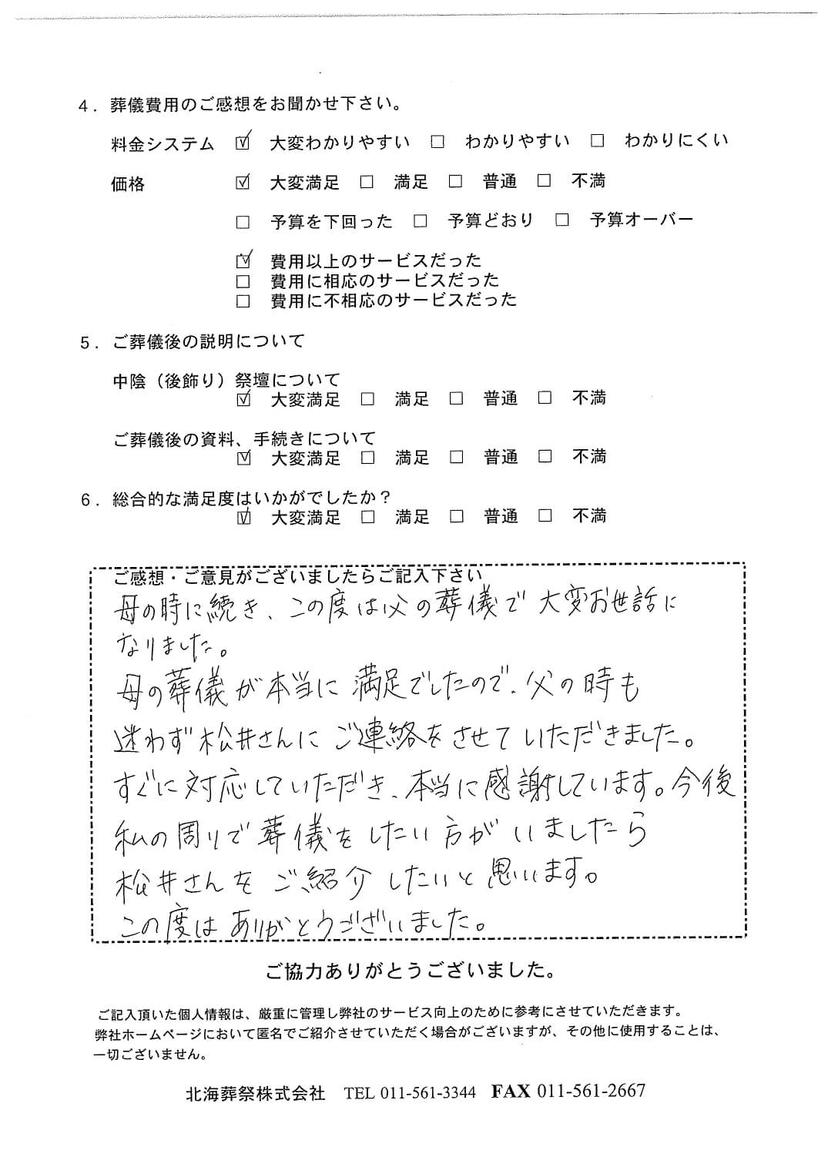 4．葬儀費用のご感想をお聞かせ下さい。
料金システム ☑ 大変わかりやすい □ わかりやすい □ わかりにくい
価格 ☑ 大変満足 □ 満足 □ 普通 □ 不満
□ 予算を下回った □ 予算どおり □ 予算オーバー
☑ 費用以上のサービスだった
□ 費用に相応のサービスだった
□ 費用に不相応のサービスだった
5．ご葬儀後の説明について
中陰（後飾り）祭壇について
☑ 大変満足 □ 満足 □ 普通 □ 不満
ご葬儀後の資料、手続きについて
☑ 大変満足 □ 満足 □ 普通 □ 不満
6．総合的な満足度はいかがでしたか？
☑ 大変満足 □ 満足 □ 普通 □ 不満
ご感想・ご意見がございましたらご記入下さい
母の時に続き、この度は父の葬儀で大変お世話に
なりました。
母の葬儀が本当に満足でしたので、父の時も
迷わず松井さんにご連絡をさせていただきました。
すぐに対応していただき、本当に感謝しています。今後
私の周りで葬儀をしたい方がいましたら
松井さんをご紹介したいと思います。
この度はありがとうございました。
ご協力ありがとうございました。
ご記入頂いた個人情報は、厳重に管理し弊社のサービス向上のために参考にさせていただきます。
弊社ホームページにおいて匿名でご紹介させていただく場合がございますが、その他に使用することは、
一切ございません。
北海葬祭株式会社 TEL 011-561-3344 FAX 011-561-2667